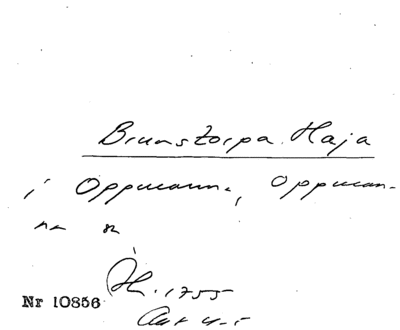 Brunstorpa Haja
i Oppmanna, Oppman-
na sn
Åh. 1755
Akt 4-5
Nr 10856